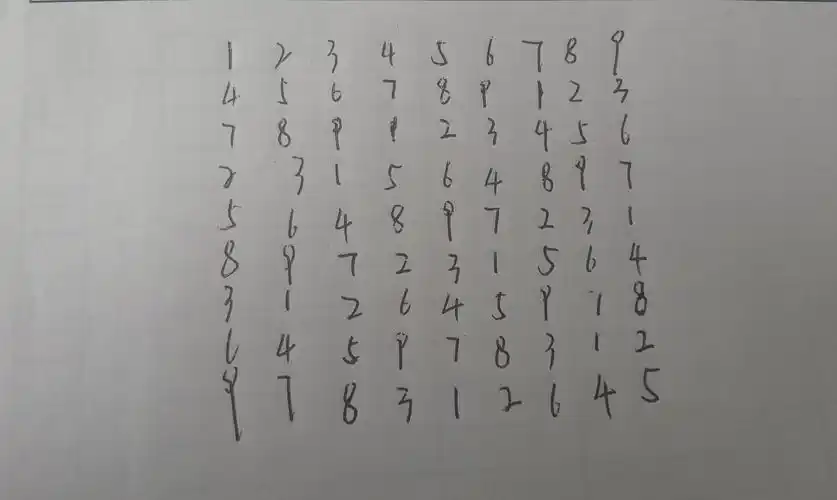 1 2 3 4 5 6 7 8 9
4 5 6 7 8 9 1 2 3
7 8 9 1 2 3 4 5 6
2 3 1 5 6 4 8 9 7
5 6 4 8 9 7 2 3 1
8 9 7 2 3 1 5 6 4
3 1 2 6 4 5 9 7 8
6 4 5 9 7 8 3 1 2
9 7 8 3 1 2 6 4 5